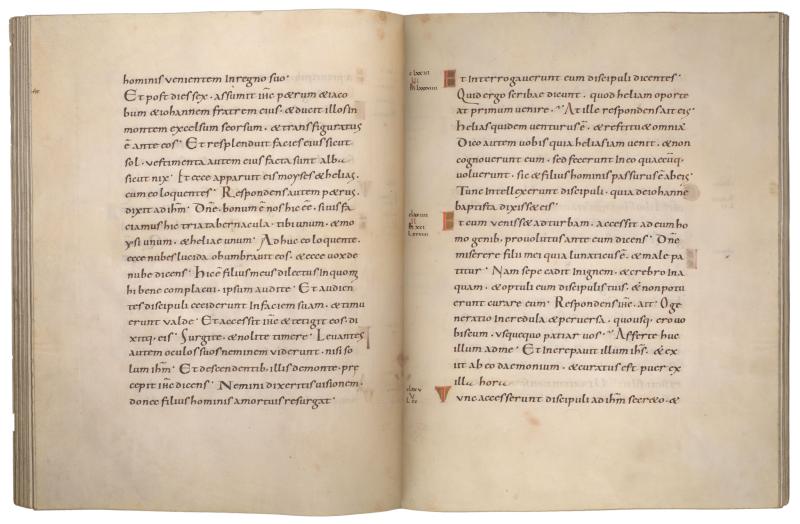 hominis venientem in regno suo·
Et post dies sex· assumit ihc petrum & iaco
bum & iohannem fratrem eius· & ducit illos in
montem excelsum seorsum· & transfiguratus
ē ante eos· Et resplenduit facies eius sicut
sol· vestimenta autem eius facta sunt alba
sicut nix· Et ecce apparuit eis moyses & helias·
cum eo loquentes· Respondens autem petrus·
dixit ad ihm· Dne· bonum ē nos hic ēe· si vis fa
ciamus hic tria tabernacula· tibi unum· & mo
ysi unum· & heliae unum· Adhuc eo loquente·
ecce nubes lucida obumbravit eos· & ecce vox de
nube dicens· Hic ē filius meus dilectus in quo m
hi bene complacui· ipsum audite· Et audien
tes discipuli ceciderunt in faciem suam· & timu
erunt valde· Et accessit ihc & tetigit eos· di
xitq· eis· Surgite· & nolite timere· Levantes
autem oculos suos neminem viderunt· nisi so
lum ihm· Et descendentib· illis de monte· pre
cepit ihc dicens· Nemini dixeritis visionem·
donec filius hominis a mortuis resurgat·
Et interrogaverunt eum discipuli dicentes·
Quid ergo scribae dicunt· quod heliam oporte
at primum venire· At ille respondens ait eis·
helias quidem venturus ē· & restitu& omnia·
Dico autem vobis quia helias iam venit· & non
cognoverunt eum· sed fecerunt in eo quaecuq·
voluerunt· sic & filius hominis passurus ē ab eis·
Tunc intellexerunt discipuli· quia de iohanne
baptista dixiss& eis·
Et cum veniss& ad turbam· accessit ad eum ho
mo genib· provolutus ante eum dicens· Dne
miserere filii mei quia lunaticus ē· & male pa
titur· Nam sepe cadit in ignem· & crebro in a
quam· & optuli eum discipulis tuis· & non potu
erunt curare eum· Respondens ihc· ait· O ge
neratio incredula & perversa· quousq· ero vo
biscum· usquequo patiar vos· Afferte huc
illum ad me· Et increpavit illum ihs· & ex
iit ab eo daemonium· & curatus est puer ex
illa hora
Tunc accesserunt discipuli ad ihm secr&o· &